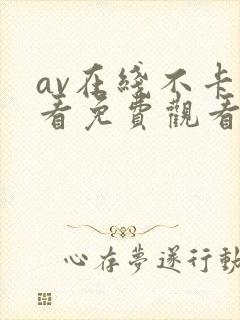 av在綫不卡
看免費觀看
心存夢遂行動